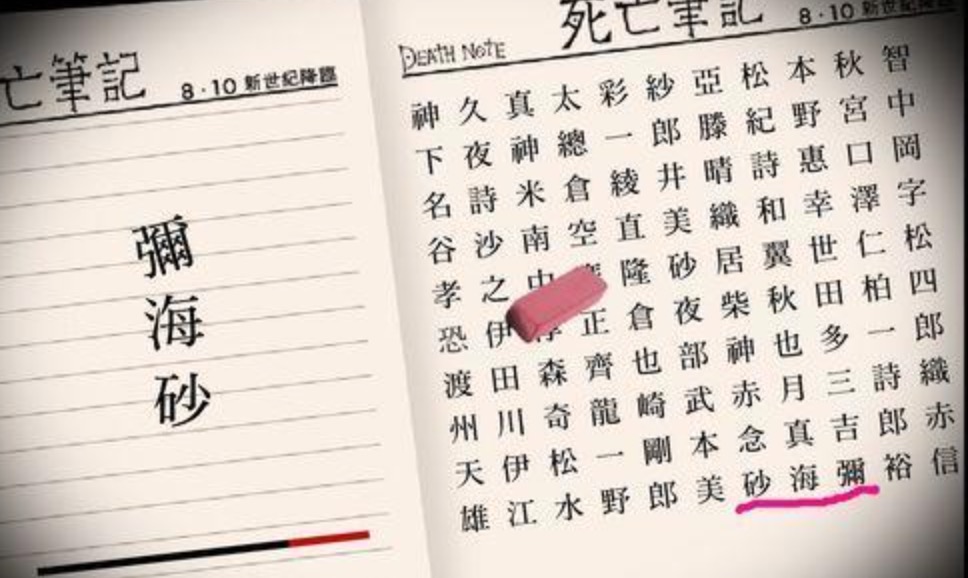 亡筆記
8·10 新世紀降臨
彌
海
砂
DEATH NOTE
死亡筆記
8·10 新世紀降臨
神久真太彩紗亞松本秋智
下夜神總一郎滕紀野宮中
名詩米倉綾井晴詩惠口岡
谷沙南空直美織和幸澤字
孝之中 隆砂居翼世仁松
恐伊 正倉夜柴秋田柏四
渡田森齊也部神也多一郎
州川奇龍崎武赤月三詩織
天伊松一剛本念真吉郎赤
雄江水野郎美砂海彌裕信